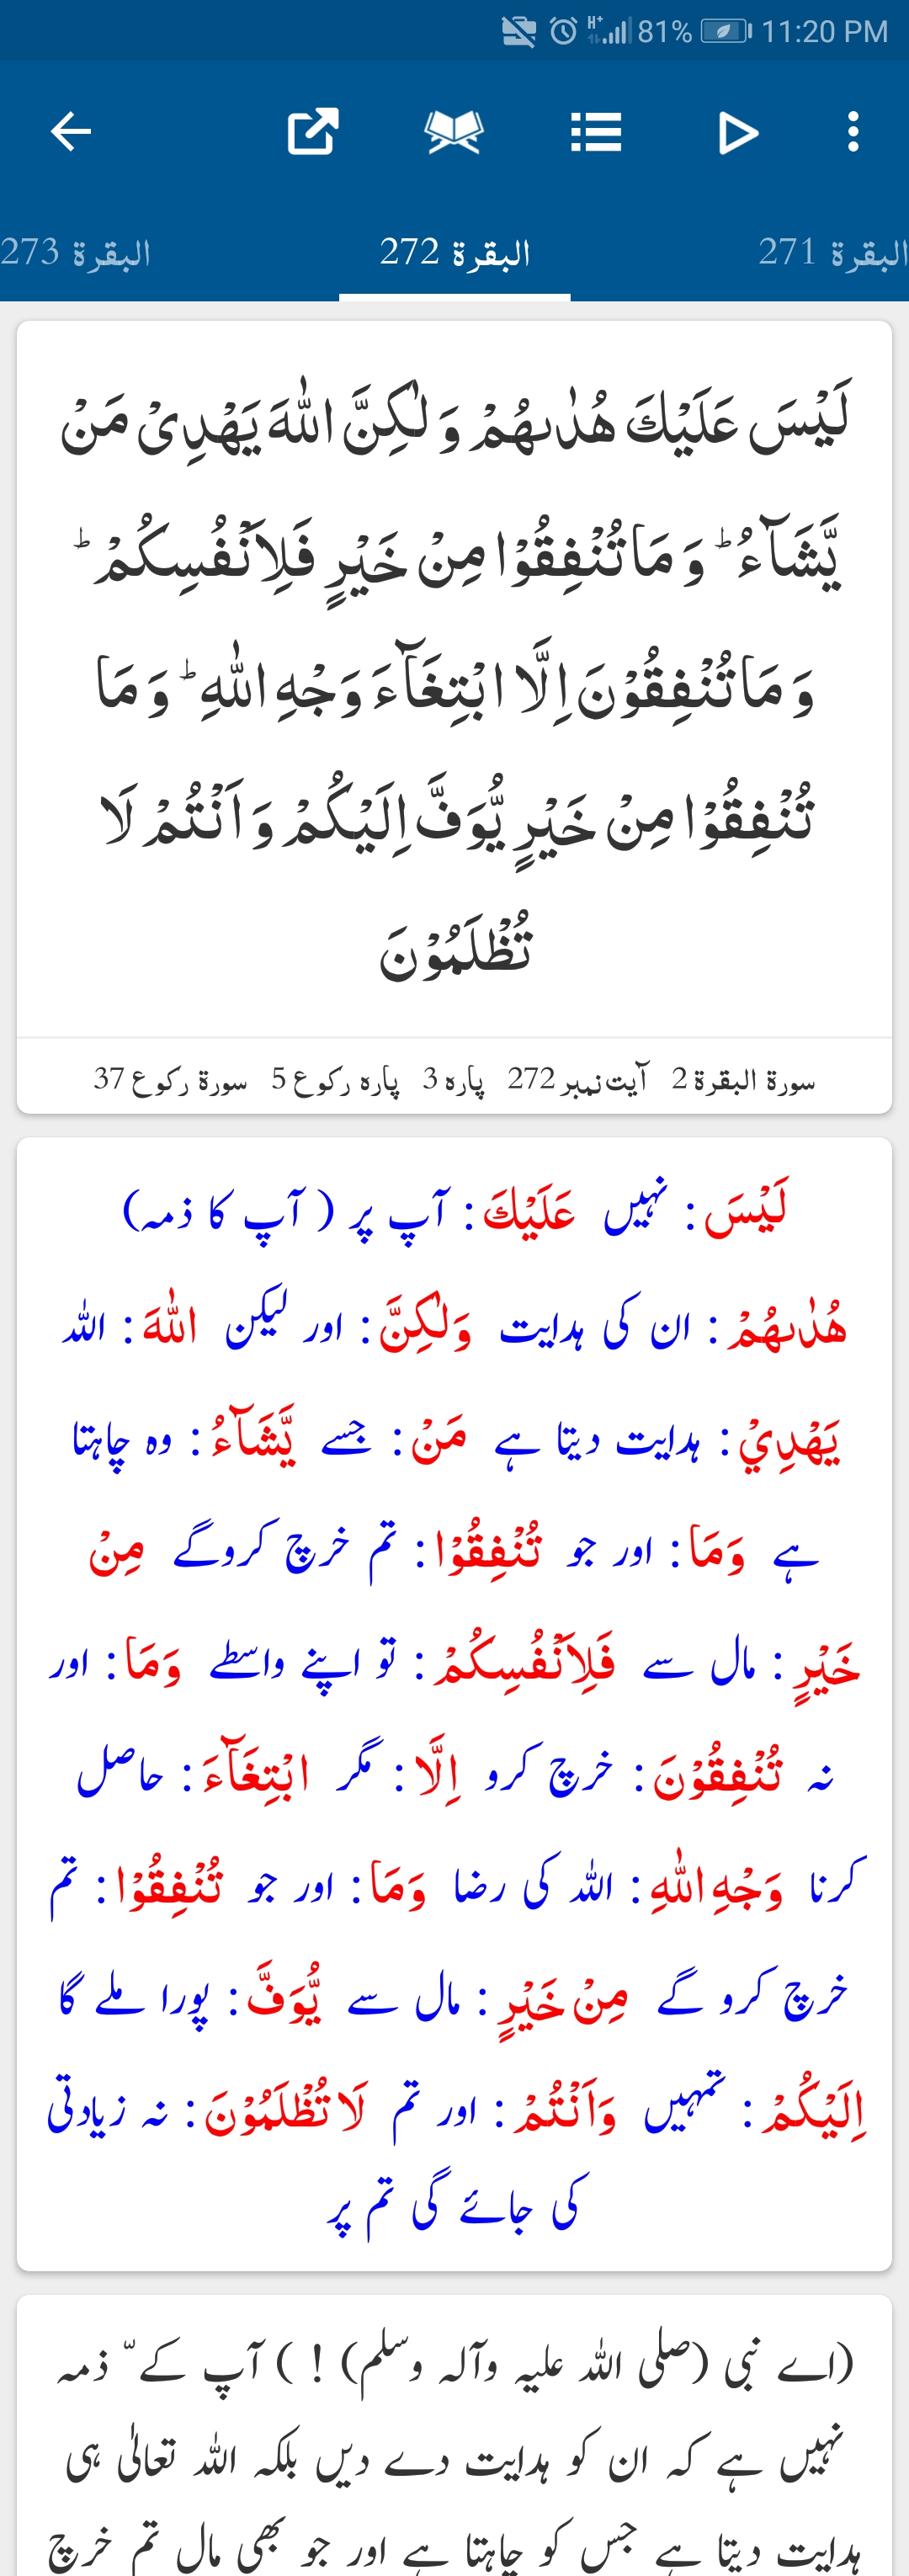 H+ 81% 11:20 PM
البقرة 271 البقرة 272 البقرة 273
لَيْسَ عَلَيْكَ هُدٰىهُمْ وَ لٰكِنَّ اللّٰهَ يَهْدِىْ مَنْ
يَّشَآءُ ؕ وَ مَا تُنْفِقُوْا مِنْ خَيْرٍ فَلِاَنْفُسِكُمْ ؕ
وَ مَا تُنْفِقُوْنَ اِلَّا ابْتِغَآءَ وَجْهِ اللّٰهِ ؕ وَ مَا
تُنْفِقُوْا مِنْ خَيْرٍ يُّوَفَّ اِلَيْكُمْ وَ اَنْتُمْ لَا
تُظْلَمُوْنَ
سورة البقرة 2 آیت نمبر 272 پارہ 3 پارہ رکوع 5 سورة رکوع 37
لَيْسَ : نہیں عَلَيْكَ : آپ پر ( آپ کا ذمہ)
ھُدٰىھُمْ : ان کی ہدایت وَلٰكِنَّ : اور لیکن اللّٰهَ : اللہ
يَهْدِيْ : ہدایت دیتا ہے مَنْ : جسے يَّشَآءُ : وہ چاہتا
ہے وَمَا : اور جو تُنْفِقُوْا : تم خرچ کروگے مِنْ
خَيْرٍ : مال سے فَلِاَنْفُسِكُمْ : تو اپنے واسطے وَمَا : اور
نہ تُنْفِقُوْنَ : خرچ کرو اِلَّا : مگر ابْتِغَآءَ : حاصل
کرنا وَجْهِ اللّٰهِ : اللہ کی رضا وَمَا : اور جو تُنْفِقُوْا : تم
خرچ کرو گے مِنْ خَيْرٍ : مال سے يُّوَفَّ : پورا ملے گا
اِلَيْكُمْ : تمہیں وَاَنْتُمْ : اور تم لَا تُظْلَمُوْنَ : نہ زیادتی
کی جائے گی تم پر
(اے نبی (صلی اللہ علیہ وآلہ وسلم) ! ) آپ کے ّ ذمہ
نہیں ہے کہ ان کو ہدایت دے دیں بلکہ اللہ تعالیٰ ہی
ہدایت دیتا ہے جس کو چاہتا ہے اور جو بھی مال تم خرچ